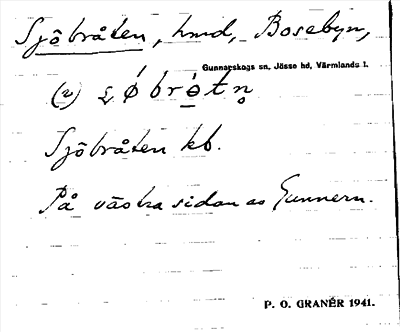 Sjöbråten, hmd, Bosebyn,
Gunnarskogs sn, Jösse hd, Värmlands l.
Sjöbråten kb.
På västra sidan av Gunnern.
P. O. GRANÉR 1941.